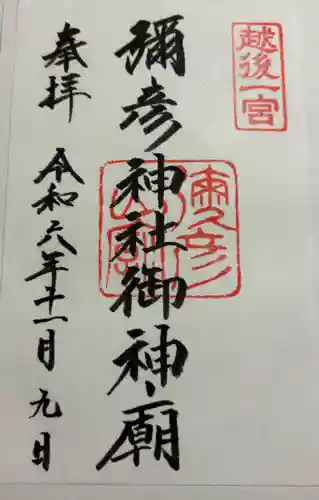 越後一宮
彌彦神社御神廟
奉拝
令和六年十一月九日